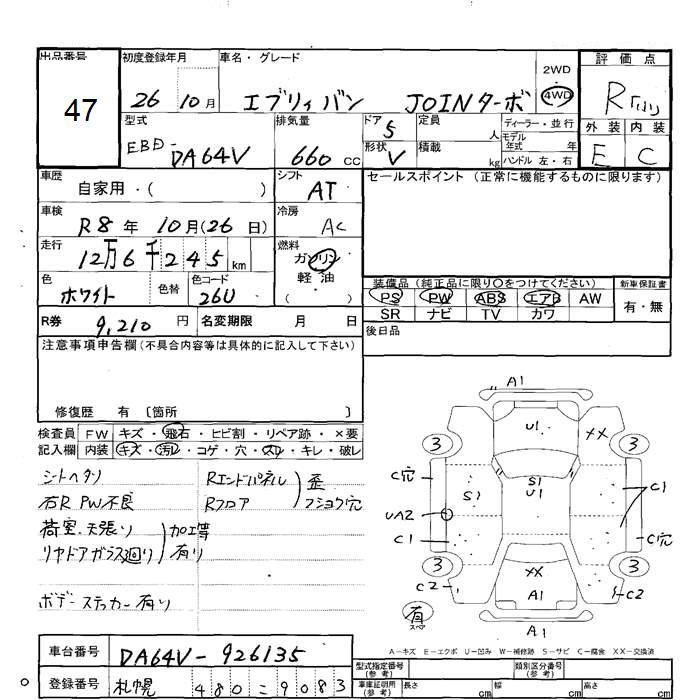 出品番号 初度登録年月 車名・グレード 2WD 4WD 評価点
47 26 10月 エブリィバン JOINターボ R
型式 排気量 ドア 5 定員 人 ディーラー・並行 外装 内装
EBD-DA64V 660 CC 形状 V 積載 kg モデル年式 年 ハンドル 左・右 E C
車歴 シフト セールスポイント (正常に機能するものに限ります)
自家用・( ) AT
車検 冷房
R8年 10月(26日) AC
走行 燃料
12万6千245km ガソリン
軽油
( )
色 色替 色コード
ホワイト 26U
装備品(純正品に限り○をつけてください) 新車保証書
PS PW ABS エアB AW 有・無
SR ナビ TV カワ
R券 9,210円 名変期限 月 日 後日品
注意事項申告欄(不具合内容等は具体的に記入して下さい)
修復歴 有 〔箇所 〕
検査員 FW キズ・飛石・ヒビ割・リペア跡・×要
記入欄 内装 キズ・汚レ・コゲ・穴・スレ・キレ・破レ
シートヘタリ Rエンドパネル 歪
右R PW不良 Rフロア フショク穴
荷室.天張り 加工等
リヤドアガラス廻り 有り
ボデーステッカー有り
A1
U1 XX
3 3
C穴 S1 S1 U1 C1
UA2
C1 C穴
3 3
C2 XX C2
A1
有 スペア
A1
A-キズ E-エクボ U-凹み W-補修跡 S-サビ C-腐食 XX-交換済
車台番号 DA64V-926135
型式指定番号(参考) 類別区分番号(参考)
登録番号 札幌 480 つ 9083
車庫証明用(参考) 長さ cm 幅 cm 高さ cm